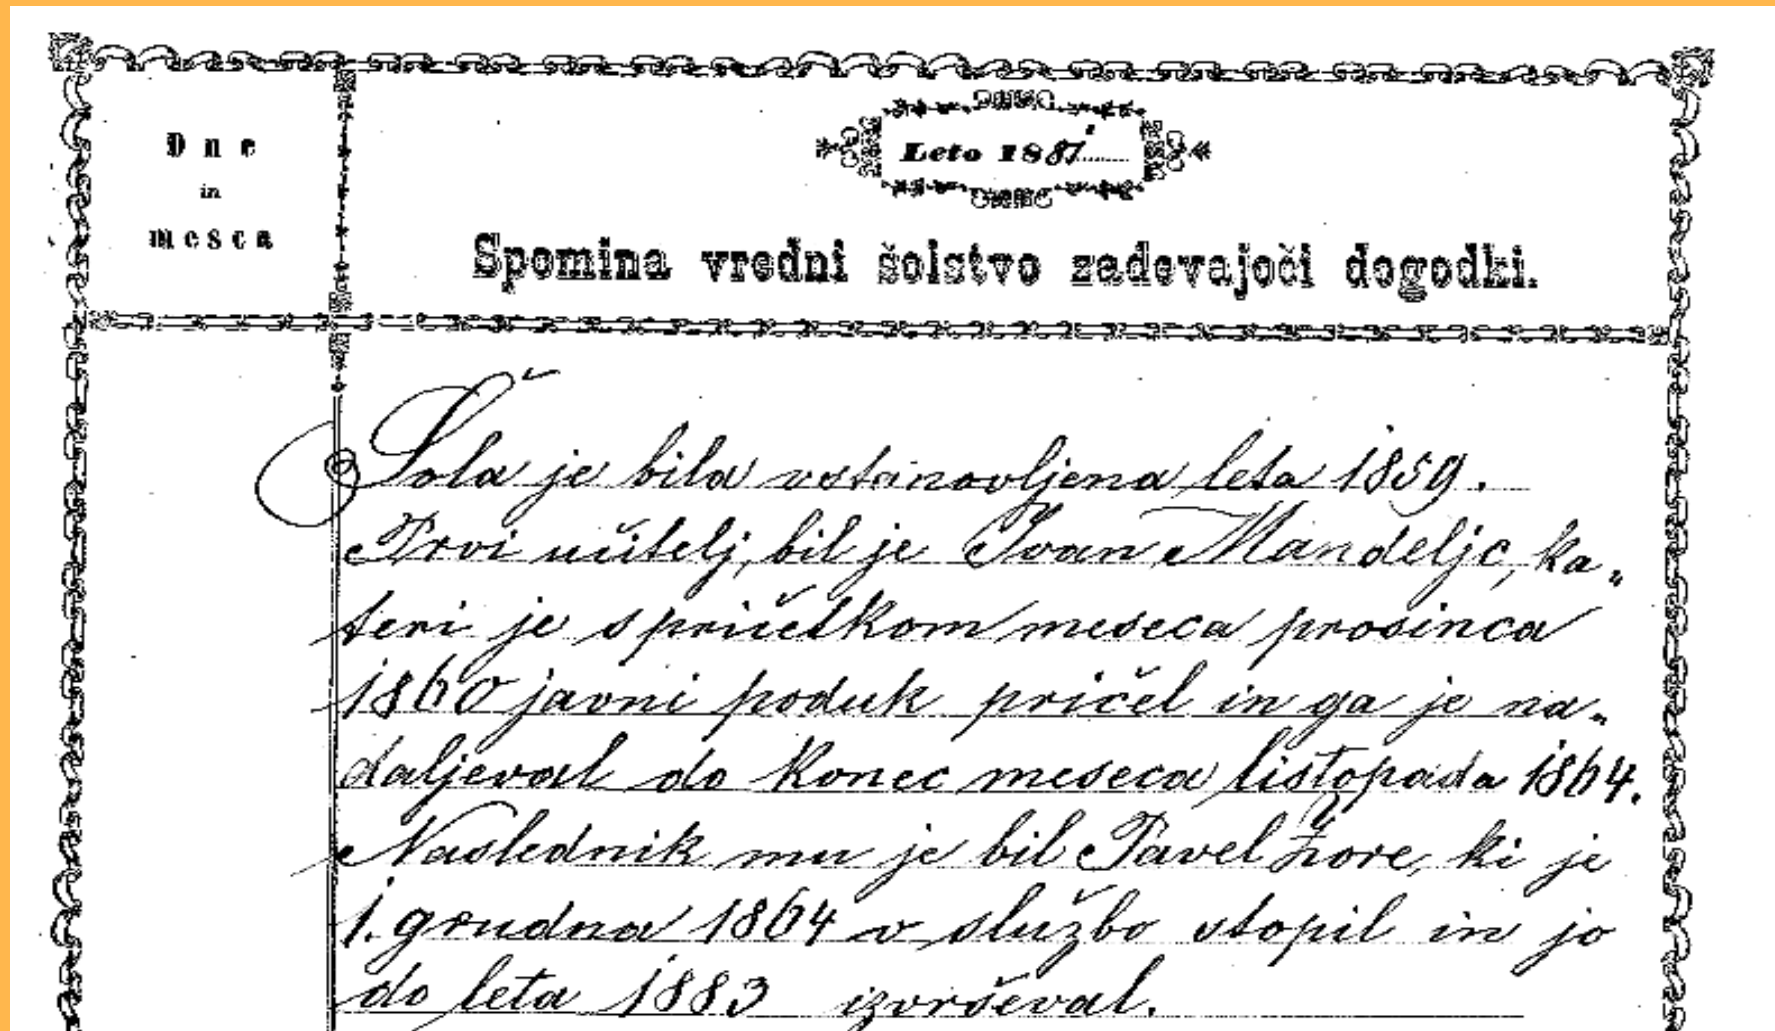 Dne
in
mesca
Leto 1887
Spomina vredni šolstvo zadevajoči dogodki.
Šola je bila vstanovljena leta 1859.
Prvi učitelj, bil je Ivan Mandeljc, ka„
teri je s pričetkom meseca prosinca
1860 javni poduk pričel in ga je na„
daljeval do konec meseca listopada 1864.
Naslednik mu je bil Pavel Žore, ki je
1. grudna 1864 v službo vstopil in jo
do leta 1883 izvrševal.